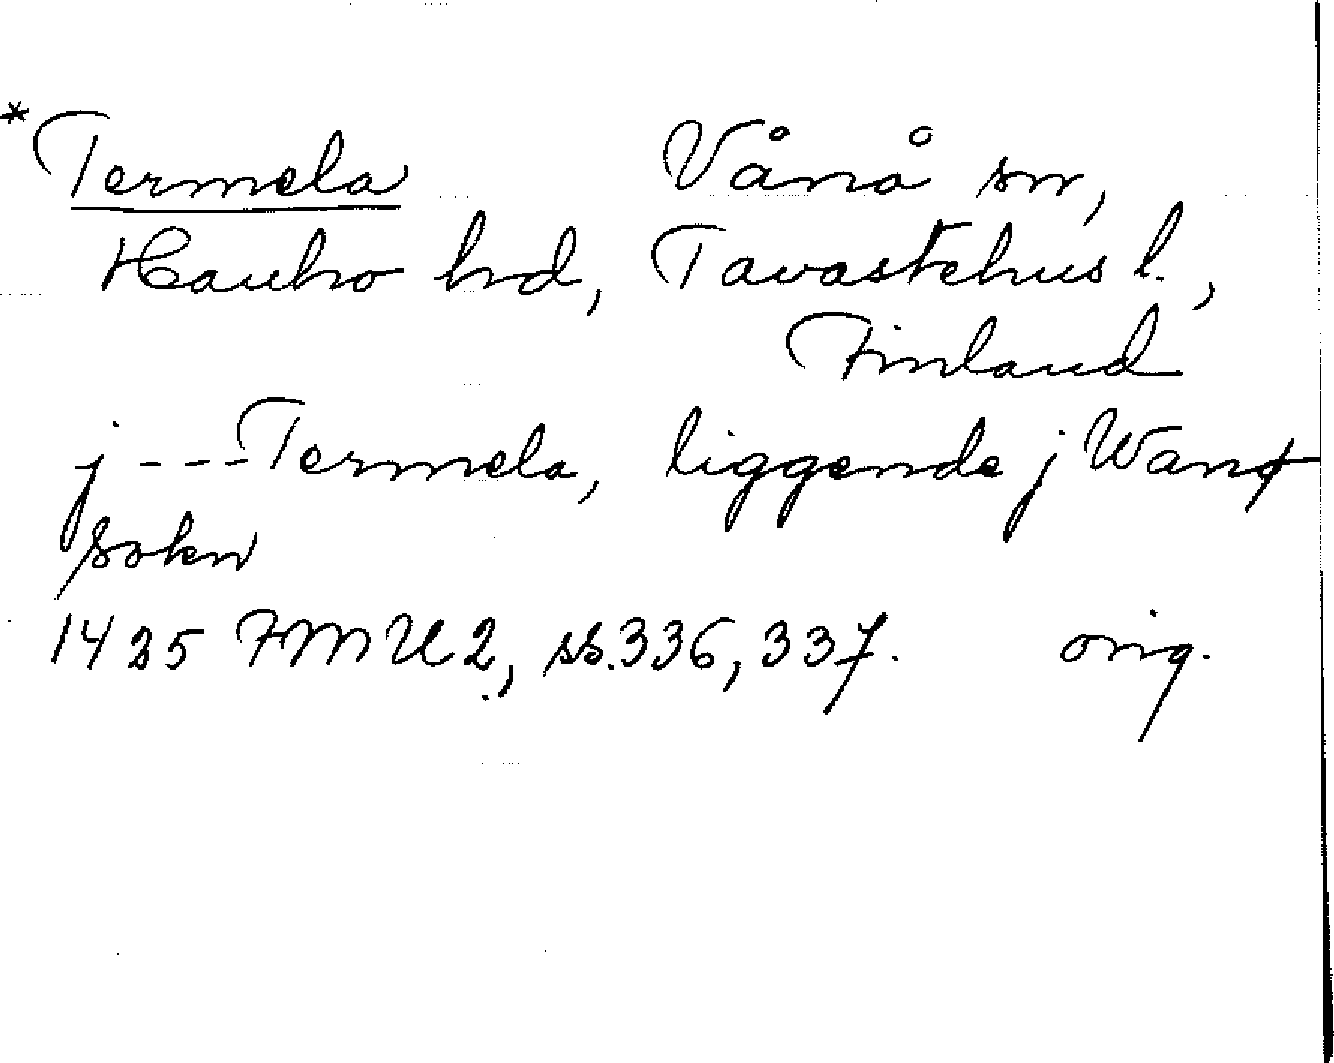 *Termela Vånå sn,
Hauho hd, Tavastehus l.,
Finland
j --- Termela, liggende j Wanø
sokn
1435 FMU 2, ss. 336, 337. orig.